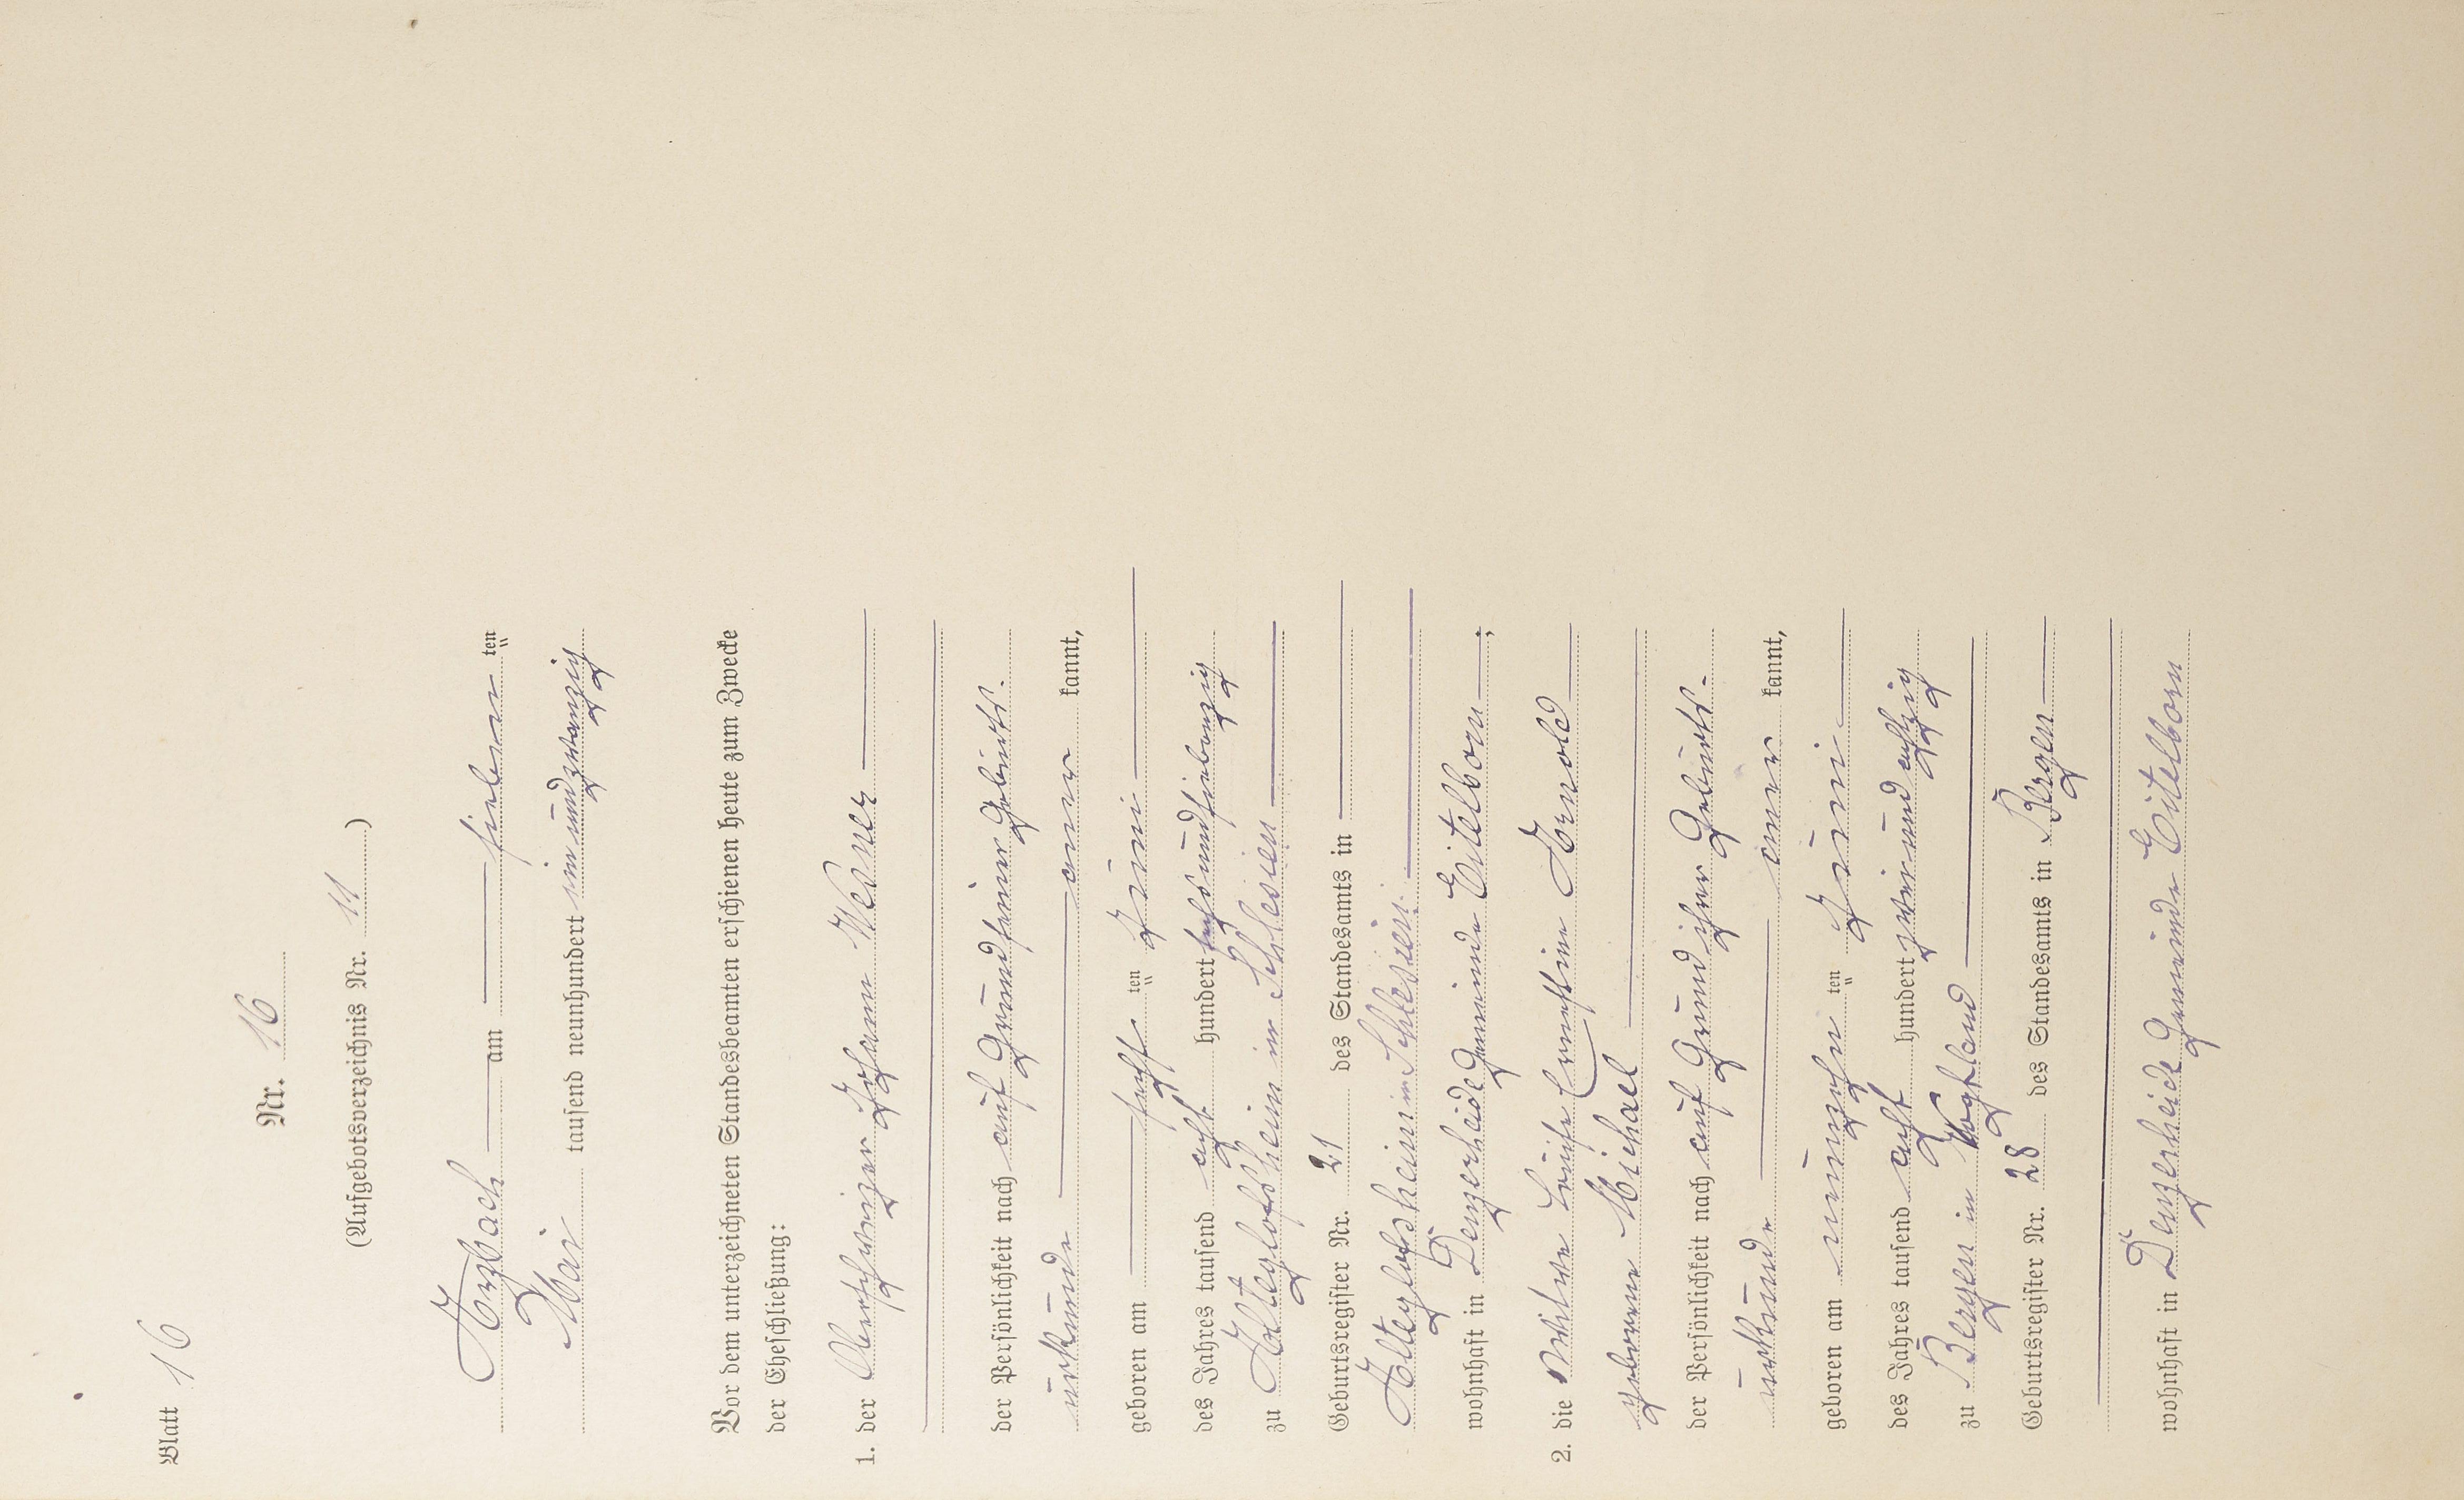 Blatt 16
Nr. 16
(Aufgebotsverzeichnis Nr. 11 )
Arzbach am sieben ten
Mai tausend neunhundert ein und zwanzig
Vor dem unterzeichneten Standesbeamten erschienen heute zum Zwecke
der Eheschließung:
1. der Oberschweizer Johann Wesner
der Persönlichkeit nach auf Grund seiner Geburts-
urkunde aner kannt,
geboren am sechs ten Juni
des Jahres tausend acht hundert sechs und siebenzig
zu Alteglofsheim in Schlesien
Geburtsregister Nr. 21 des Standesamts in
Alteglofsheim in Schlesien
wohnhaft in Denzerheide Gemeinde Eitelborn ;
2. die Witwe Luise Ernestine Arnold
geborene Michael
der Persönlichkeit nach auf Grund ihrer Geburts-
urkunde aner kannt,
geboren am neunzehn ten Juni
des Jahres tausend acht hundert zwei und achtzig
zu Bergen in Vogtland
Geburtsregister Nr. 28 des Standesamts in Bergen
wohnhaft in Denzerheide Gemeinde Eitelborn